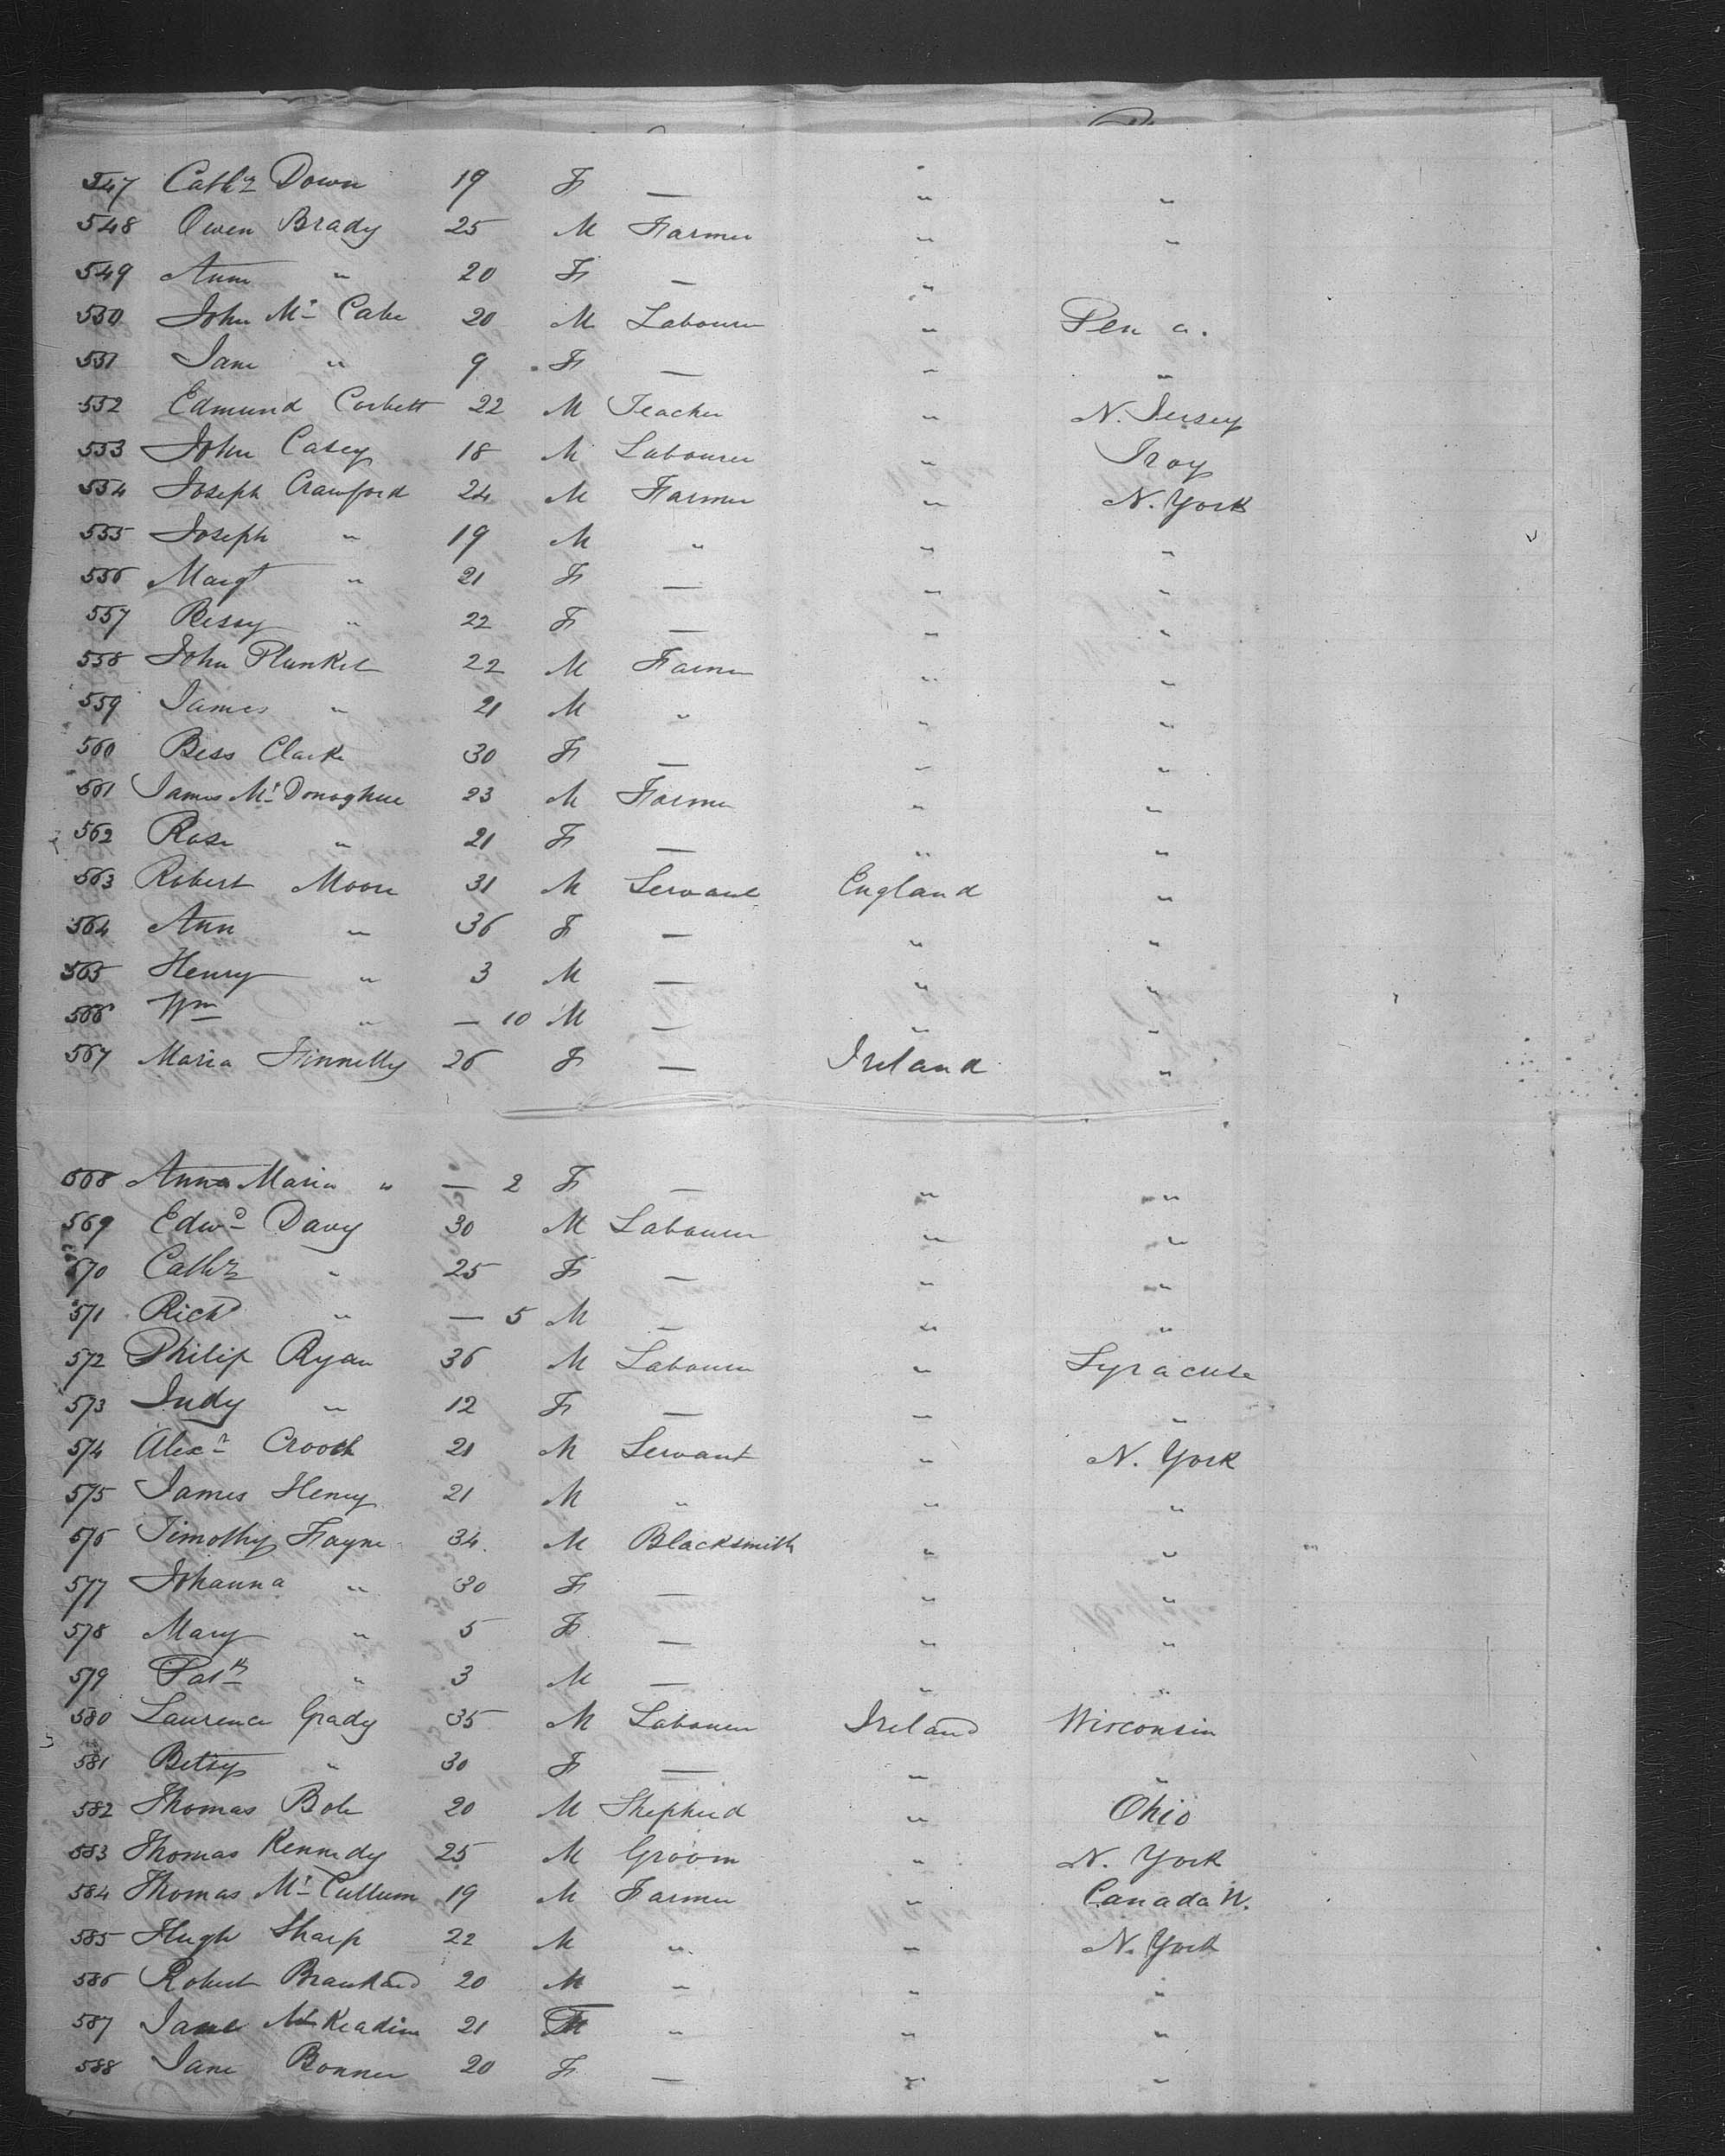 547 Cathe Down 19 F — " "
548 Owen Brady 25 M Farmer " "
549 Ann " 20 F — " "
550 John Mc Cabe 20 M Labourer " Pen a.
551 Jane " 9 F — " "
552 Edmund Corbett 22 M Teacher " N. Jersey
553 John Casey 18 M Labourer " Troy
554 Joseph Crawford 24 M Farmer " N. York
555 Joseph " 19 M " " "
556 Margt " 21 F — " "
557 Bessy " 22 F — " "
558 John Plunket 22 M Farmer " "
559 James " 21 M " " "
560 Bess Clarke 30 F — " "
561 James Mc Donoghue 23 M Farmer " "
562 Rose " 21 F — " "
563 Robert Moore 31 M Servant England "
564 Ann " 36 F — " "
565 Henry " 3 M — " "
566 Wm " — 10 M — " "
567 Maria Finnelly 26 F — Ireland "
568 Anna Maria " — 2 F — " "
569 Edwd Davy 30 M Labourer " "
570 Cathe " 25 F — " "
571 Richd " — 5 M — " "
572 Philip Ryan 36 M Labourer " Syracuse
573 Judy " 12 F — " "
574 Alexr 21 M Servant " N. York
575 James Henry 21 M " " "
576 Timothy Fayne 34 M Blacksmith " "
577 Johanna " 30 F — " "
578 Mary " 5 F — " "
579 Patk " 3 M — " "
580 Laurence Grady 35 M Labourer Ireland Wisconsin
581 Betsy " 30 F — " "
582 Thomas Bole 20 M Shepherd " Ohio
583 Thomas Kennedy 25 M Groom " N. York
584 Thomas Mc Cullum 19 M Farmer " Canada W.
585 Hugh Sharp 22 M " " N. York
586 Robert 20 M " " "
587 Jane 21 F " " "
588 Jane Bonner 20 F — " "